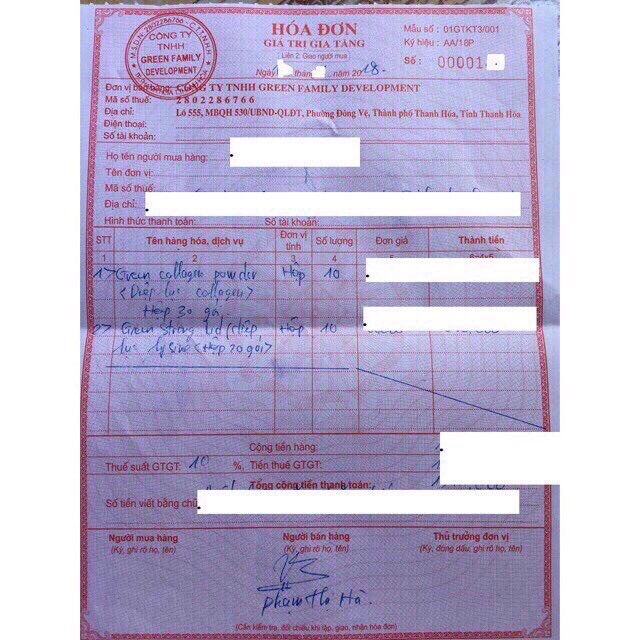 HÓA ĐƠN
GIÁ TRỊ GIA TĂNG
Liên 2: Giao người mua
Mẫu số : 01GTKT3/001
Ký hiệu : AA/18P
Số : 00001
Ngày tháng năm 2018.
M.S.D.N: 2802286766 - C.T.T.N.H.H
CÔNG TY
TNHH
GREEN FAMILY
DEVELOPMENT
Đơn vị bán hàng: CÔNG TY TNHH GREEN FAMILY DEVELOPMENT
Mã số thuế: 2802286766
Địa chỉ: Lô 555, MBQH 530/UBND-QLĐT, Phường Đông Vệ, Thành phố Thanh Hóa, Tỉnh Thanh Hóa
Điện thoại:
Số tài khoản:
Họ tên người mua hàng:
Tên đơn vị:
Mã số thuế:
Địa chỉ:
Hình thức thanh toán: Số tài khoản:
STT Tên hàng hóa, dịch vụ Đơn vị tính Số lượng Đơn giá Thành tiền
1 2 3 4 5 6=4x5
1> Green collagen powder Hộp 10
<Diệp lục collagen>
Hộp 30 gói
2> Green strong kid (diệp Hộp 10
lục lysine <Hộp 20 gói>
Cộng tiền hàng:
Thuế suất GTGT: 10 %, Tiền thuế GTGT:
Tổng cộng tiền thanh toán:
Số tiền viết bằng chữ
Người mua hàng Người bán hàng Thủ trưởng đơn vị
(Ký, ghi rõ họ, tên) (Ký, ghi rõ họ, tên) (Ký, đóng dấu, ghi rõ họ, tên)
Phạm Thị Hà.
(Cần kiểm tra, đối chiếu khi lập, giao, nhận hóa đơn)